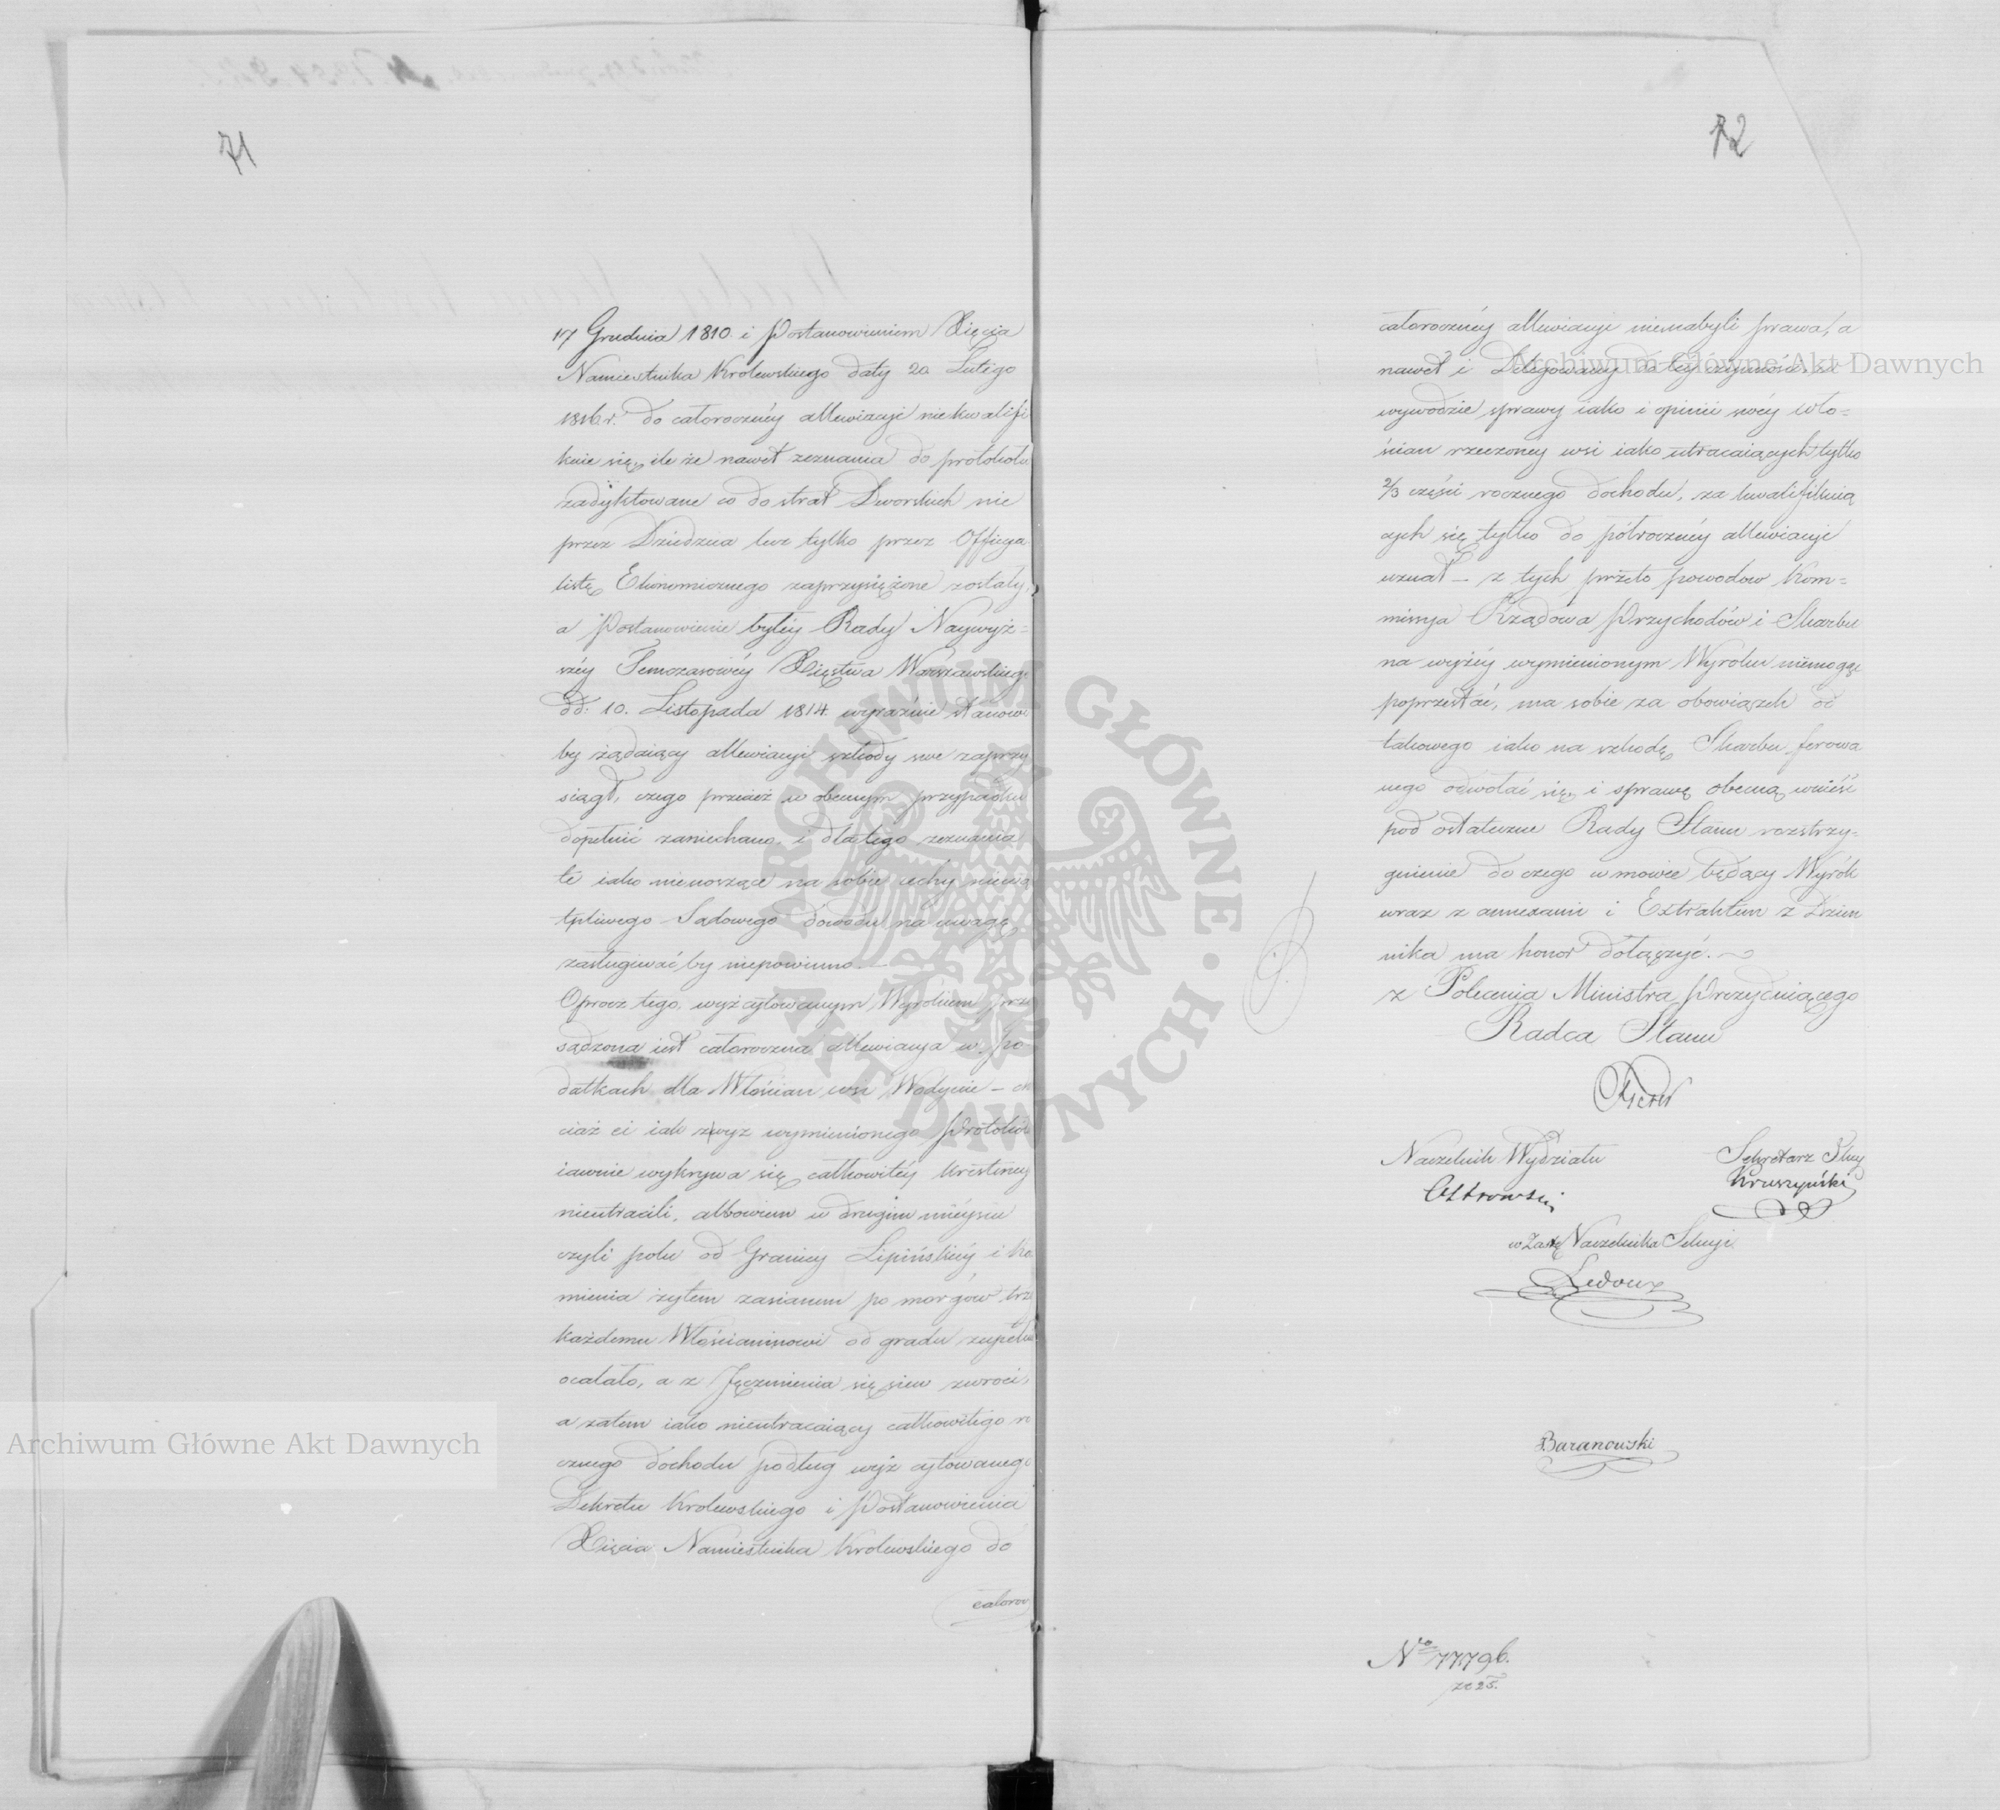 71
17 Grudnia 1810 i Postanowieniem Xięcia
Namiestnika Królewskiego daty 20 Lutego
1816 r. do całoroczney allewiacyi niekwalifi
kuie się, ile że nawet zeznania do protokołu
zadyktowane co do strat Dworskich nie
przez Dziedzica lecz tylko przez Officya
listę Ekonomicznego zaprzysiężone zostały,
a Postanowienie byłey Rady Naywyż=
széy Temczasowéy Xięstwa Warszawskieg
dd: 10. Listopada 1814 wyraźnie stanowi
by żądaiący allewiacyi szkody swe zaprzy
siągł, czego przecież w obecnym przypadku
dopełnić zaniechano, i dlatego zeznania
te iako nienoszące na sobie cechy niewą
tpliwego Sądowego dowodu na uwagę
zasługiwać by niepowinno.—
Oprocz tego, wyż cytowanym Wyrokiem, przy
sądzona iest całoroczna allewiacya w po
datkach dla Włościan wsi Wodynie – cho
ciaż ci iak zwyż wymienionego Protokołu
iawnie wykrywa się całkowitéy kreścency
nieutracili, albowiem w drugim mieyscu
czyli polu od Granicy Lipińskiéy i Ka
mienia żytem zasianem po morgów trzy
każdemu Włościaninowi od gradu zupełnie
ocalało, a z Jęczmienia się siew zwroci,
a zatem iako nieutracaiący całkowitego ro
cznego dochodu podług wyż cytowanego
Dekretu Krolewskiego i Postanowienia
Xięcia Namiestnika Krolewskiego do
całorocz
72
całoroczney allewiacyi nienabyli prawa, a
nawet i Delegowany do tey czynności, w
wywodzie sprawy iako i opinii swéy wło=
ścian rzeczoney wsi iako utracaiących tylko
2/3 części rocznego dochodu, za kwalifikuią
cych się tylko do półroczney allewiacyi
uznał – z tych przeto powodow Kom=
missya Rządowa Przychodów i Skarbu
na wyżéy wymienionym Wyroku niemogąc
poprzestać, ma sobie za obowiązek od
takowego iako na szkodę Skarbu ferowa
nego odwołać się i sprawę obecną wnieść
pod ostateczne Rady Stanu rozstrzy=
gnienie do czego w mowie będący Wyrók
wraz z annexami i Extraktem z Dzien
nika ma honor dołączyć.
z Polecenia Ministra Prezyduiącego
Radca Stanu
Naczelnik Wydziału
Ostrowski
Sekretarz Jlny
Kruszyński
w Zastę Naczelnika Sekcyi
Ledoux
Baranowski
No 77796.
ze 25.
Archiwum Główne Akt Dawnych
Archiwum Główne Akt Dawnych
ARCHIWUM GŁÓWNE · AKT DAWNYCH ·